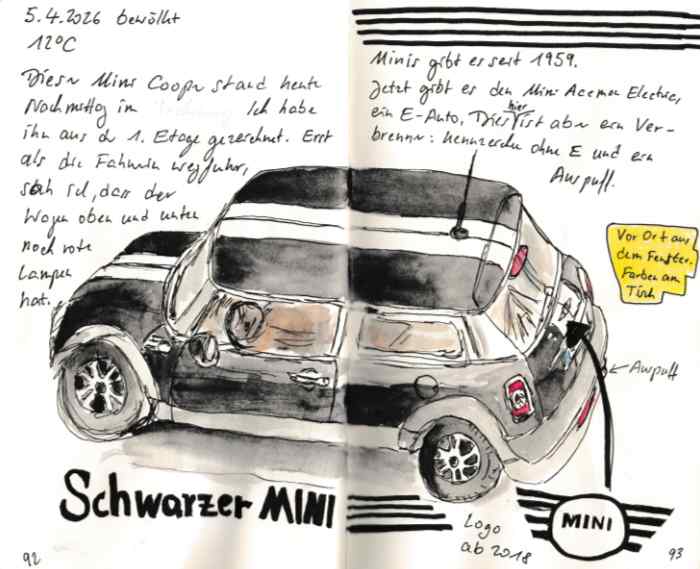 5.4.2026 bewölkt
12°C
Dieser Mini Cooper stand heute
Nachmittag im Ich habe
ihn aus d 1. Etage gezeichnet. Erst
als die Fahrerin wegfuhr,
sah ich, dass der
Wagen oben und unten
noch rote
Lampen
hat.
Minis gibt es seit 1959.
Jetzt gibt es den Mini Aceman Electric,
ein E-Auto. Dieser hier ist aber ein Ver-
brenner: Kennzeichen ohne E und ein
Auspuff.
Vor Ort aus
dem Fenster.
Farben am
Tisch
← Auspuff
Schwarzer MINI
Logo
ab 2018
MINI
92
93